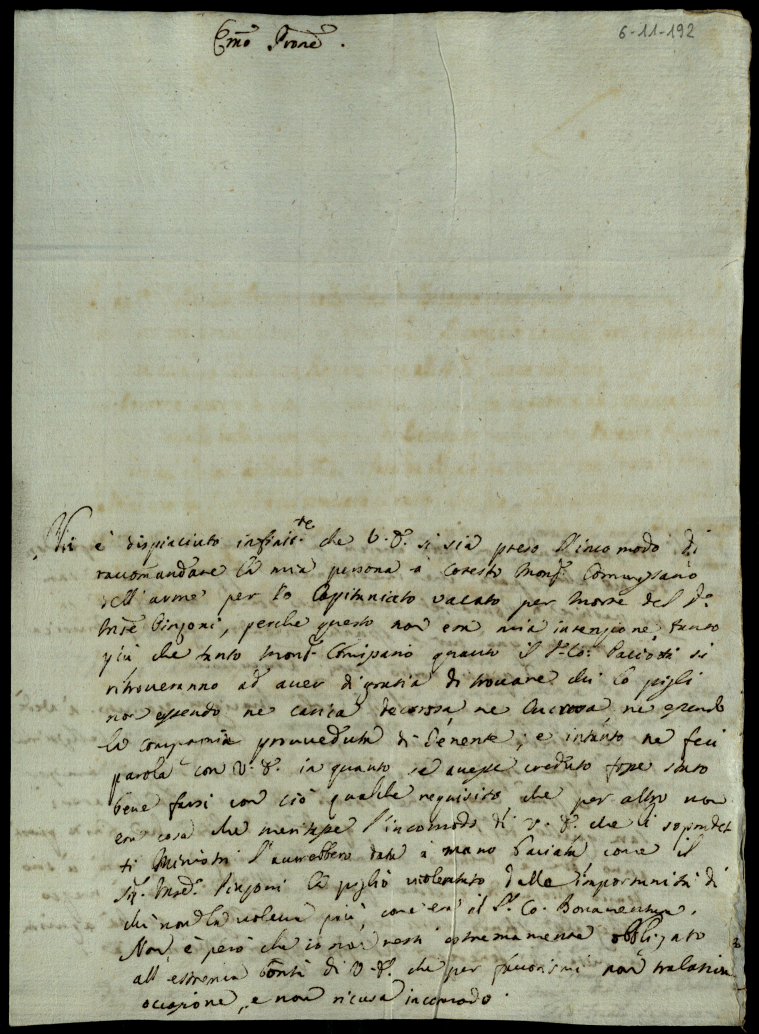 6-11-192
Emo Prone.
Mi è dispiaciuto infinit.te che V.S. si sia preso l'incomodo di
raccomandare la mia persona a cotesto Mons.r Comissario
dell'armi per lo Capitaniato vacato per morte del S.r
Pinzoni, perche questo non era mia intenzione, tanto
più che tanto Mons.r Comissario quanto il S.r Co: Paciotti si
ritroveranno ad aver di gratia di trovare chi lo pigli
non essendo ne carica decorosa, ne lucrosa, ne essendo
la compagnia provveduta di Tenente; e intanto ne feci
parola con V.S. in quanto se avesse creduto fosse stato
bene farsi con ciò qualche requisito che per altro non
era cosa che meritasse l'incomodo di V.S. che i sopradet
ti Ministri l'averebbero data a mano baciata come il
Sig. Pinzoni la pigliò violentato dalle importunità di
chi non la voleva più, come era il S.r Co. Bonaventura.
Non è però che io non resti estremamente obbligato
all'estrema bontà di V.S. che per favorirmi non tralascia
occasione, e non ricusa incomodo.